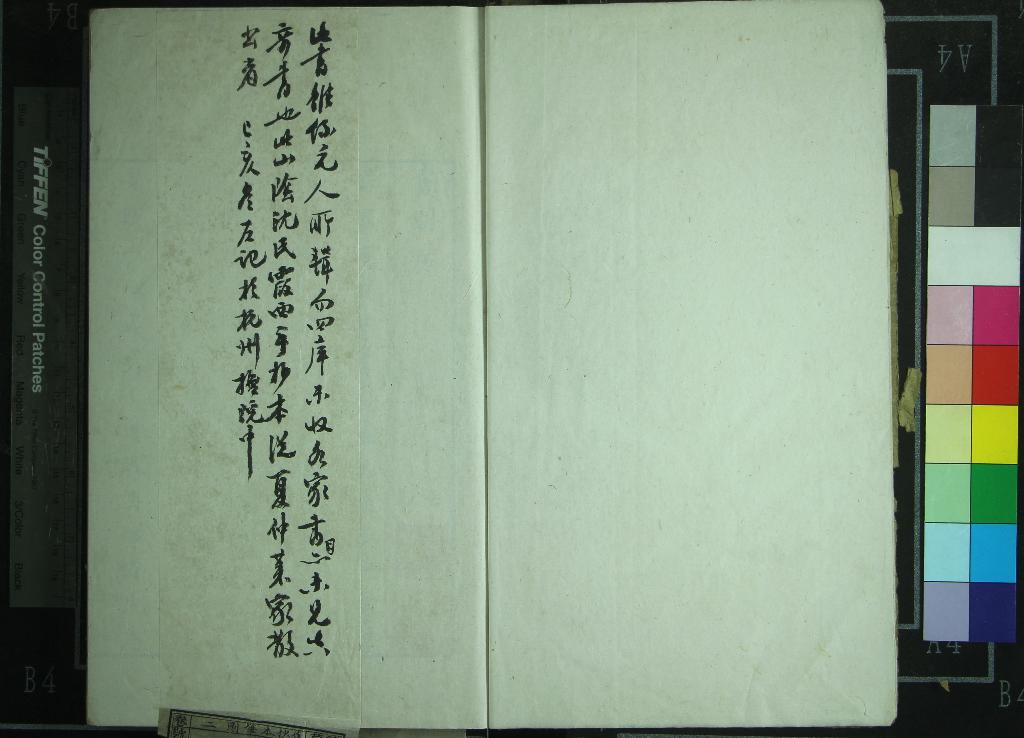 此書雖係元人所輯而四庫未收各家書目亦未見真
奇書也此山陰沈氏霞西手抄本從夏仲 家散
出者 己亥冬 記於杭州 院中
TIFFEN Color Control Patches
Blue Cyan Green Yellow Red Magenta White 3/Color Black
A4
A4
B4
B4
B4